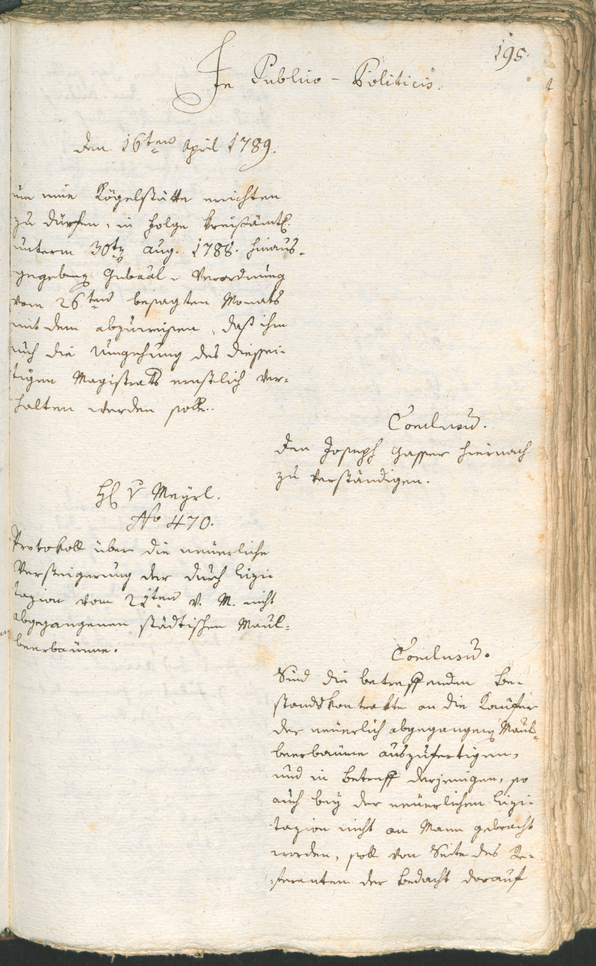 195.
In Publico-Politicis.
den 16ten April 1789.
um eine Kögelstätte errichten
zu dürfen, in Folge kreisämtl.
unterm 30ten Aug. 1788. hinaus-
gegebener Gubeal. Verordnung
vom 26ten besagten Monats
mit dem abzuweisen, daß ihm
auch die Umgehung des diessei-
tigen Magistrats ernstlich ver-
halten werden solle.
Conclusum.
Den Joseph Gasser hiernach
zu verständigen.
H v Meyrl.
No 470.
Protokoll über die neuerliche
Versteigerung der durch Lizi-
tazion vom 21ten v. M. nicht
abgegangenen städtischen Maul-
beerbäume.
Conclusum.
Sind die betreffenden Be-
standskontrakte an die Käufer
der neuerlich abgegangenen Maul-
beerbäume auszufertigen,
und in Betreff derjenigen, so
auch bey der neuerlichen Lizi-
tazion nicht an Mann gebracht
worden, soll von Seite des Re-
ferenten der Bedacht darauf